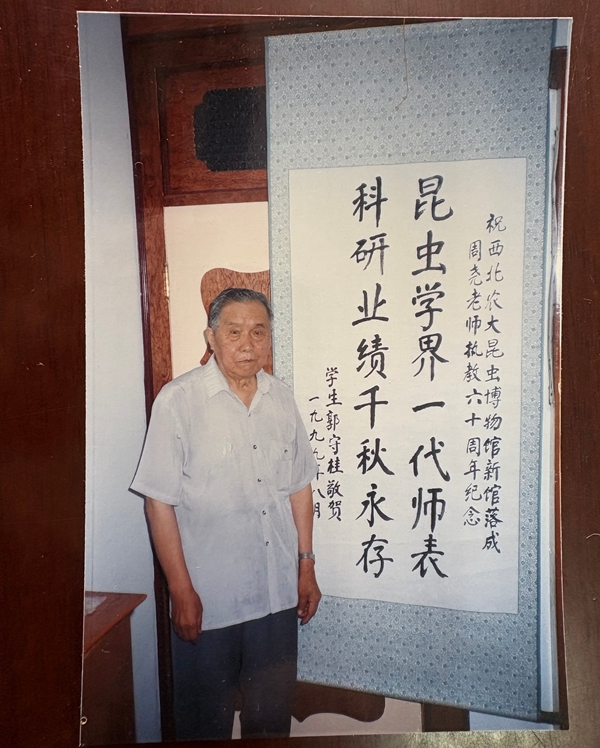 祝西北农大昆虫博物馆新馆落成
周尧老师执教六十周年纪念
昆虫学界一代师表
科研业绩千秋永存
学生郭守桂敬贺
一九九九年八月